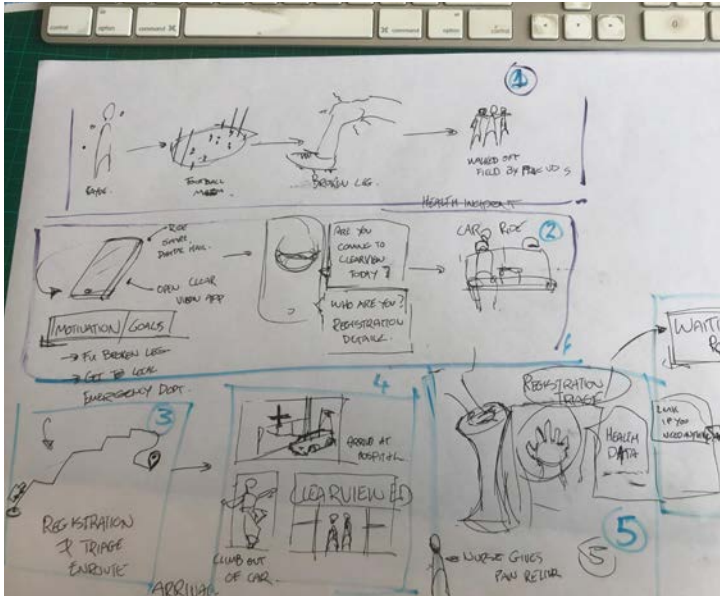 control
option
command ⌘
⌘ command
option
control
0
1
FOOTBALL
BROKEN LEG.
WALKED OFF
FIELD BY
HEALTH INCIDENT
2
CAR RIDE
OPEN CLEAR
VIEW APP
ARE YOU
COMING TO
CLEARVIEW
TODAY?
WHO ARE YOU?
REGISTRATION
DETAIL.
MOTIVATION/GOALS
→ FIX BROKEN LEG
→ GET TO LOCAL
EMERGENCY DEPT.
3
REGISTRATION
& TRIAGE
ENROUTE
4
ARRIVE AT
HOSPITAL
CLEARVIEW ED
CLIMB OUT
OF CAR.
ARRIVAL
REGISTRATION
TRIAGE
HEALTH
DATA
5
5
NURSE GIVES
PAIN RELIEF
IF YOU